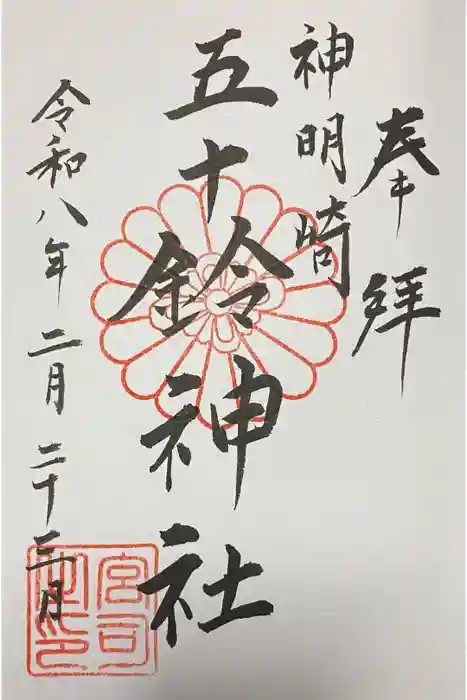 奉拝
神明崎
五十鈴神社
令和八年 二月 二十三日
宮司
之印